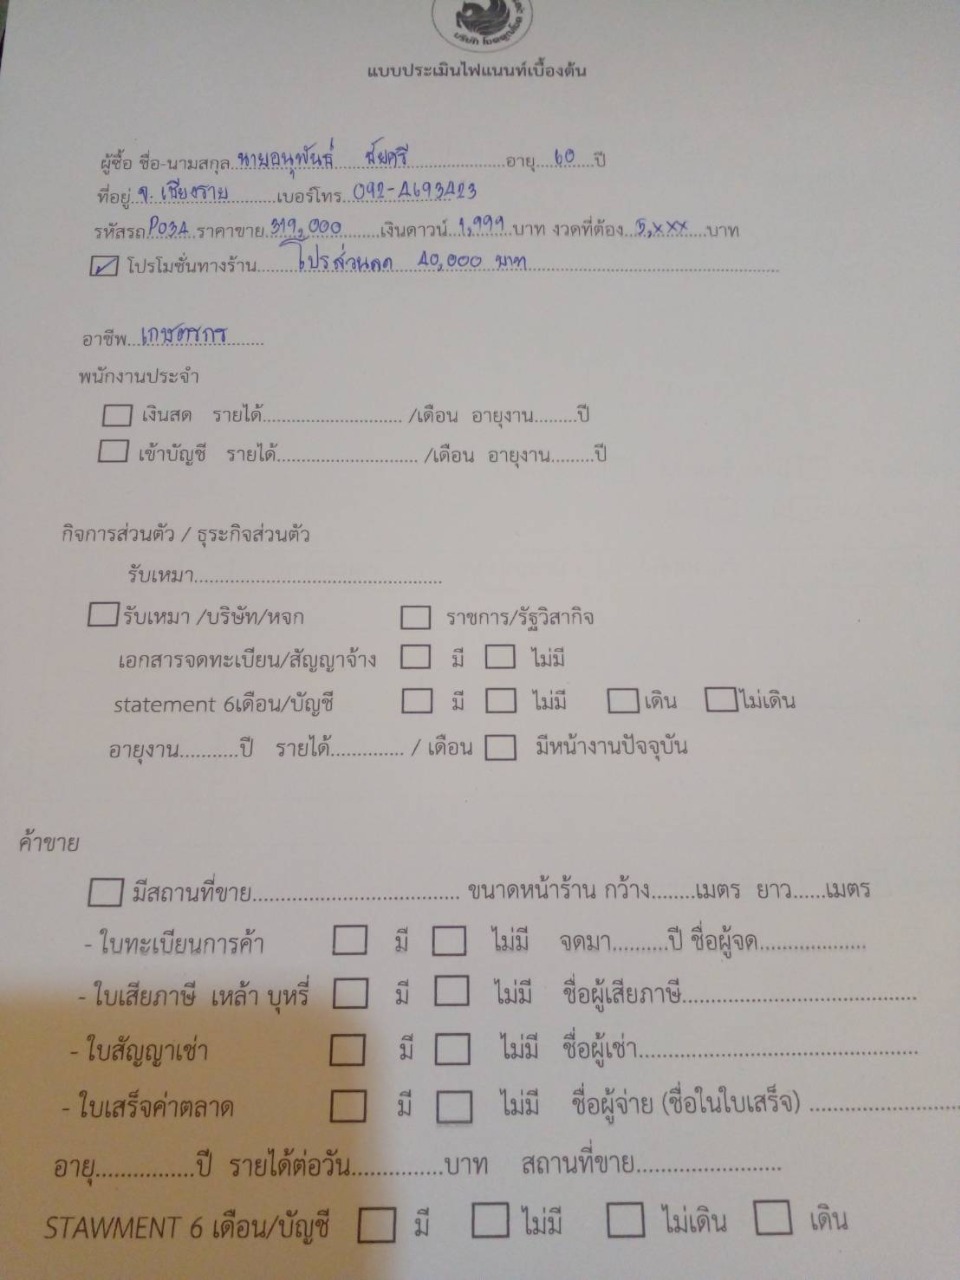 บริษัท
แบบประเมินไฟแนนท์เบื้องต้น
ผู้ซื้อ ชื่อ-นามสกุล..นายอนุพันธ์ ชัยศรี......................อายุ....60..ปี
ที่อยู่.จ.เชียงราย...........เบอร์โทร..092-4693423
รหัสรถ.P034.ราคาขาย.319,000........เงินดาวน์..1,999..บาท งวดที่ต้อง..5,xxx....บาท
โปรโมชั่นทางร้าน......โปรส่วนลด 40,000 บาท..................................................
อาชีพ...เกษตรกร........
พนักงานประจำ
เงินสด รายได้............................ /เดือน อายุงาน.........ปี
เข้าบัญชี รายได้............................ /เดือน อายุงาน.........ปี
กิจการส่วนตัว / ธุระกิจส่วนตัว
รับเหมา.................................................
รับเหมา /บริษัท/หจก ราชการ/รัฐวิสากิจ
เอกสารจดทะเบียน/สัญญาจ้าง มี ไม่มี
statement 6เดือน/บัญชี มี ไม่มี เดิน ไม่เดิน
อายุงาน...........ปี รายได้.............. / เดือน มีหน้างานปัจจุบัน
ค้าขาย
มีสถานที่ขาย..................................... ขนาดหน้าร้าน กว้าง........เมตร ยาว......เมตร
- ใบทะเบียนการค้า มี ไม่มี จดมา..........ปี ชื่อผู้จด...................
- ใบเสียภาษี เหล้า บุหรี่ มี ไม่มี ชื่อผู้เสียภาษี.........................................
- ใบสัญญาเช่า มี ไม่มี ชื่อผู้เช่า.................................................
- ใบเสร็จค่าตลาด มี ไม่มี ชื่อผู้จ่าย (ชื่อในใบเสร็จ) ..........................
อายุ................ปี รายได้ต่อวัน...............บาท สถานที่ขาย.......................
STAWMENT 6 เดือน/บัญชี มี ไม่มี ไม่เดิน เดิน